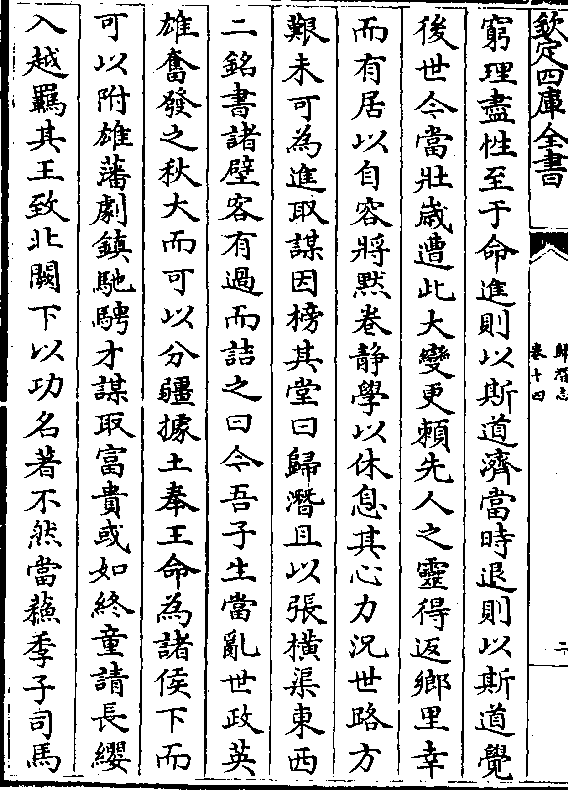 欽定四庫全書
歸潛志
卷十四
二
窮理盡性至于命進則以斯道濟當時退則以斯道覺
後世今當壯歲遭此大變更賴先人之靈得返鄉里幸
而有居以自容將默卷静學以休息其心力況世路方
艱未可為進取謀因榜其堂曰歸潛且以張橫渠東西
二銘書諸壁客有過而詰之曰今吾子生當亂世政英
雄奮發之秋大而可以分疆據土奉王命為諸侯下而
可以附雄藩劇鎮馳騁才謀取富貴或如終童請長纓
入越羈其王致北闕下以功名著不然當蘓季子司馬